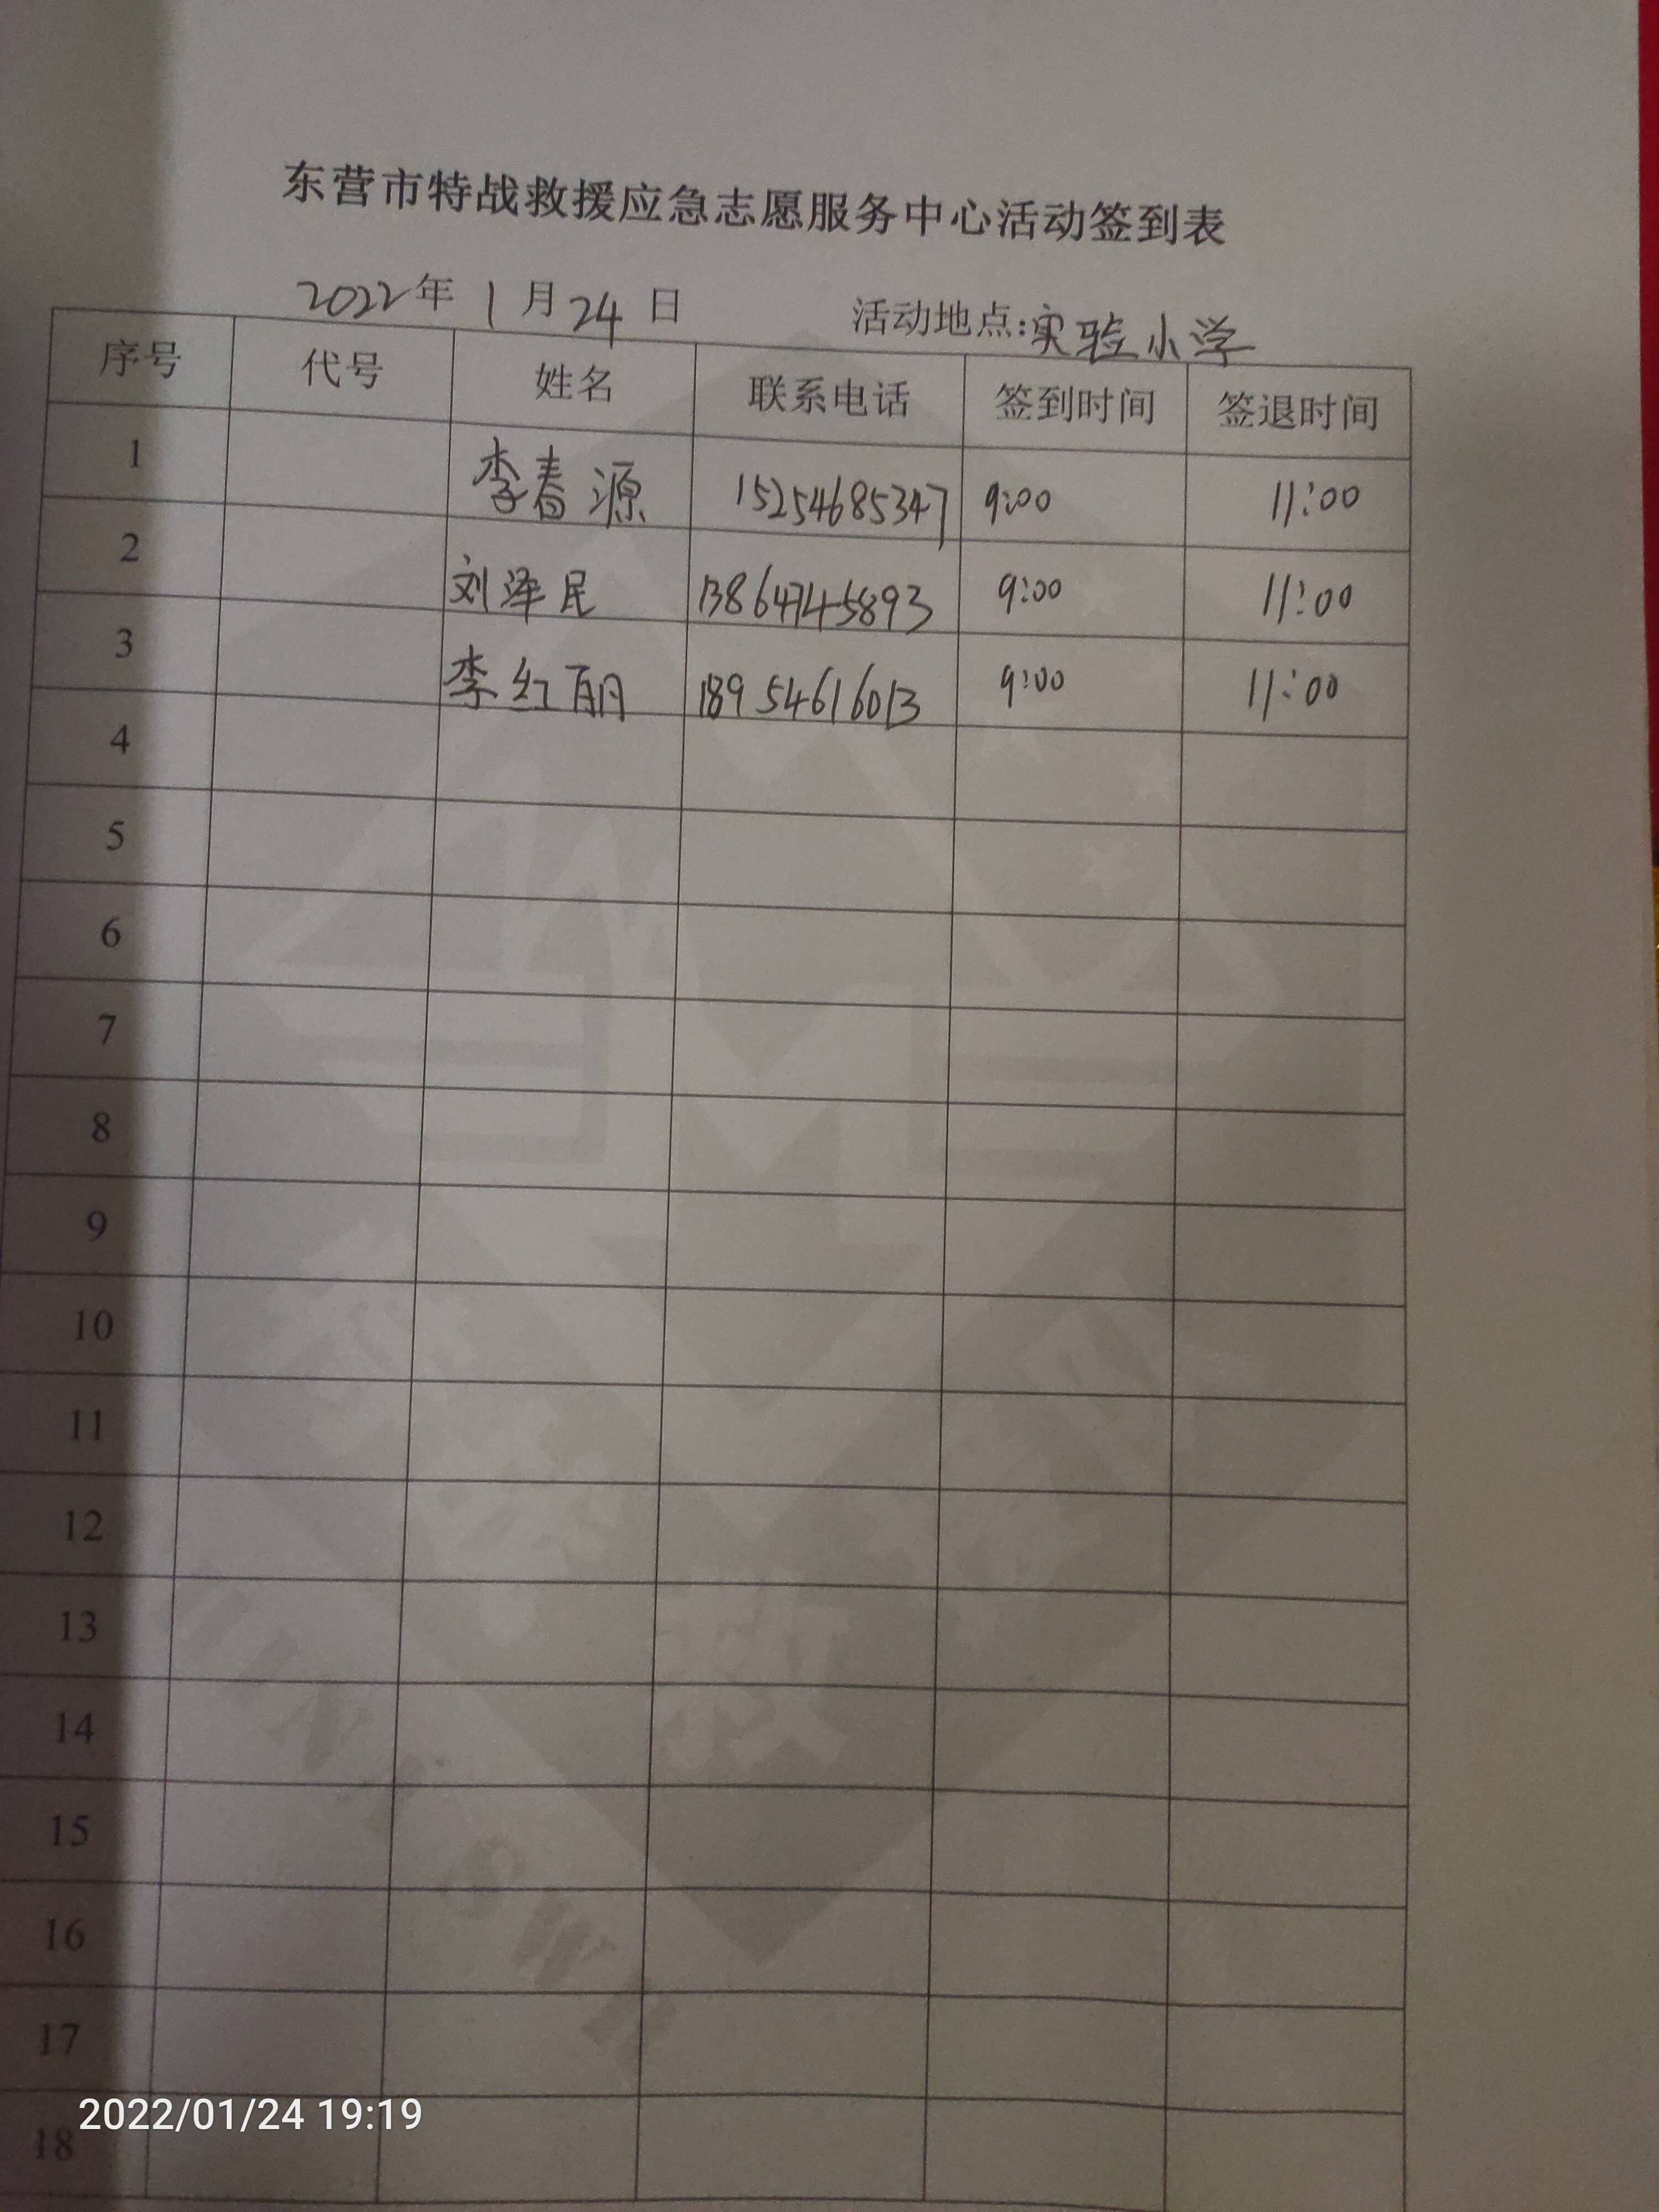 东营市特战救援应急志愿服务中心活动签到表
2022年 1月24日 活动地点:实验小学
序号 代号 姓名 联系电话 签到时间 签退时间
1 李春源 15254685347 9:00 11:00
2 刘泽民 13864745893 9:00 11:00
3 李红丽 18954616013 9:00 11:00
4
5
6
7
8
9
10
11
12
13
14
15
16
17
18
2022/01/24 19:19